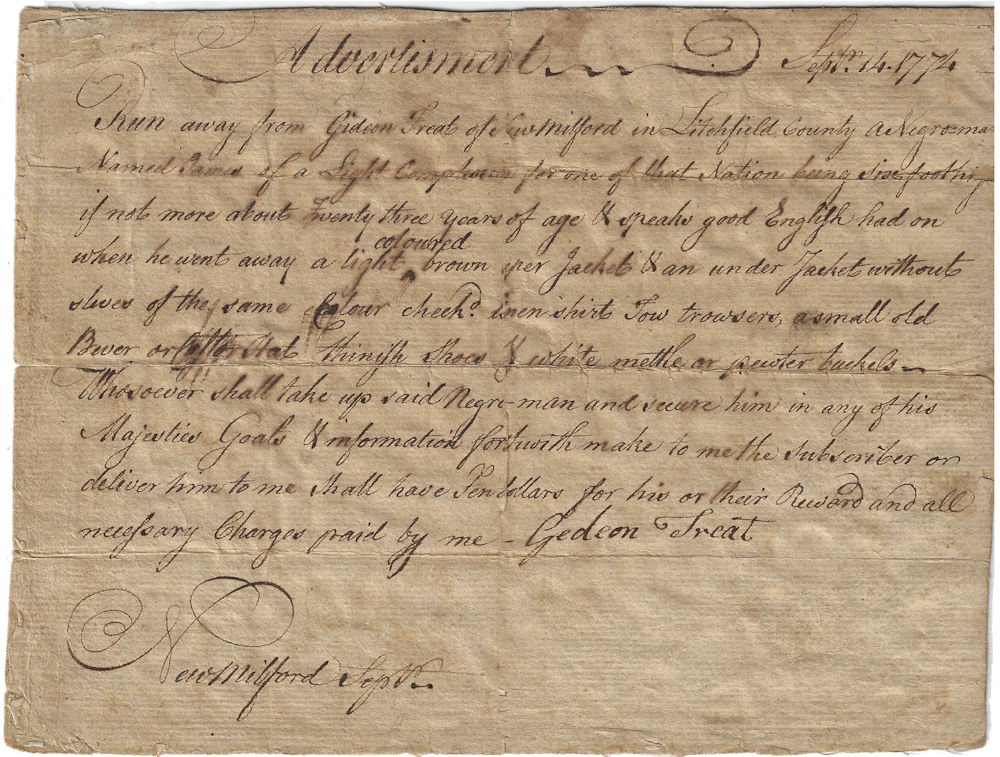 Advertisment Septr. 14. 1774
Run away from Gideon Treat of NewMilford in Litchfield County a Negro=ma
Named James of a Light Complexion for one of that Nation being six foot hig
if not more about Twenty three years of age & speaks good English had on
coloured
when he went away a light brown uper Jacket & an under Jacket without
slves of the same Colour check.d linen shirt Tow trowsers, a small old
Bever or Castor Hat thinish shoes & white mettle or pewter buckels
Whosoever shall take up said Negro-man and secure him in any of his
Majesties Goals & information forthwith make to me the subscriber or
deliver him to me shall have Ten dollars for his or their Reward and all
necessary Charges paid by me - Gedeon Treat
NewMilford Septr.